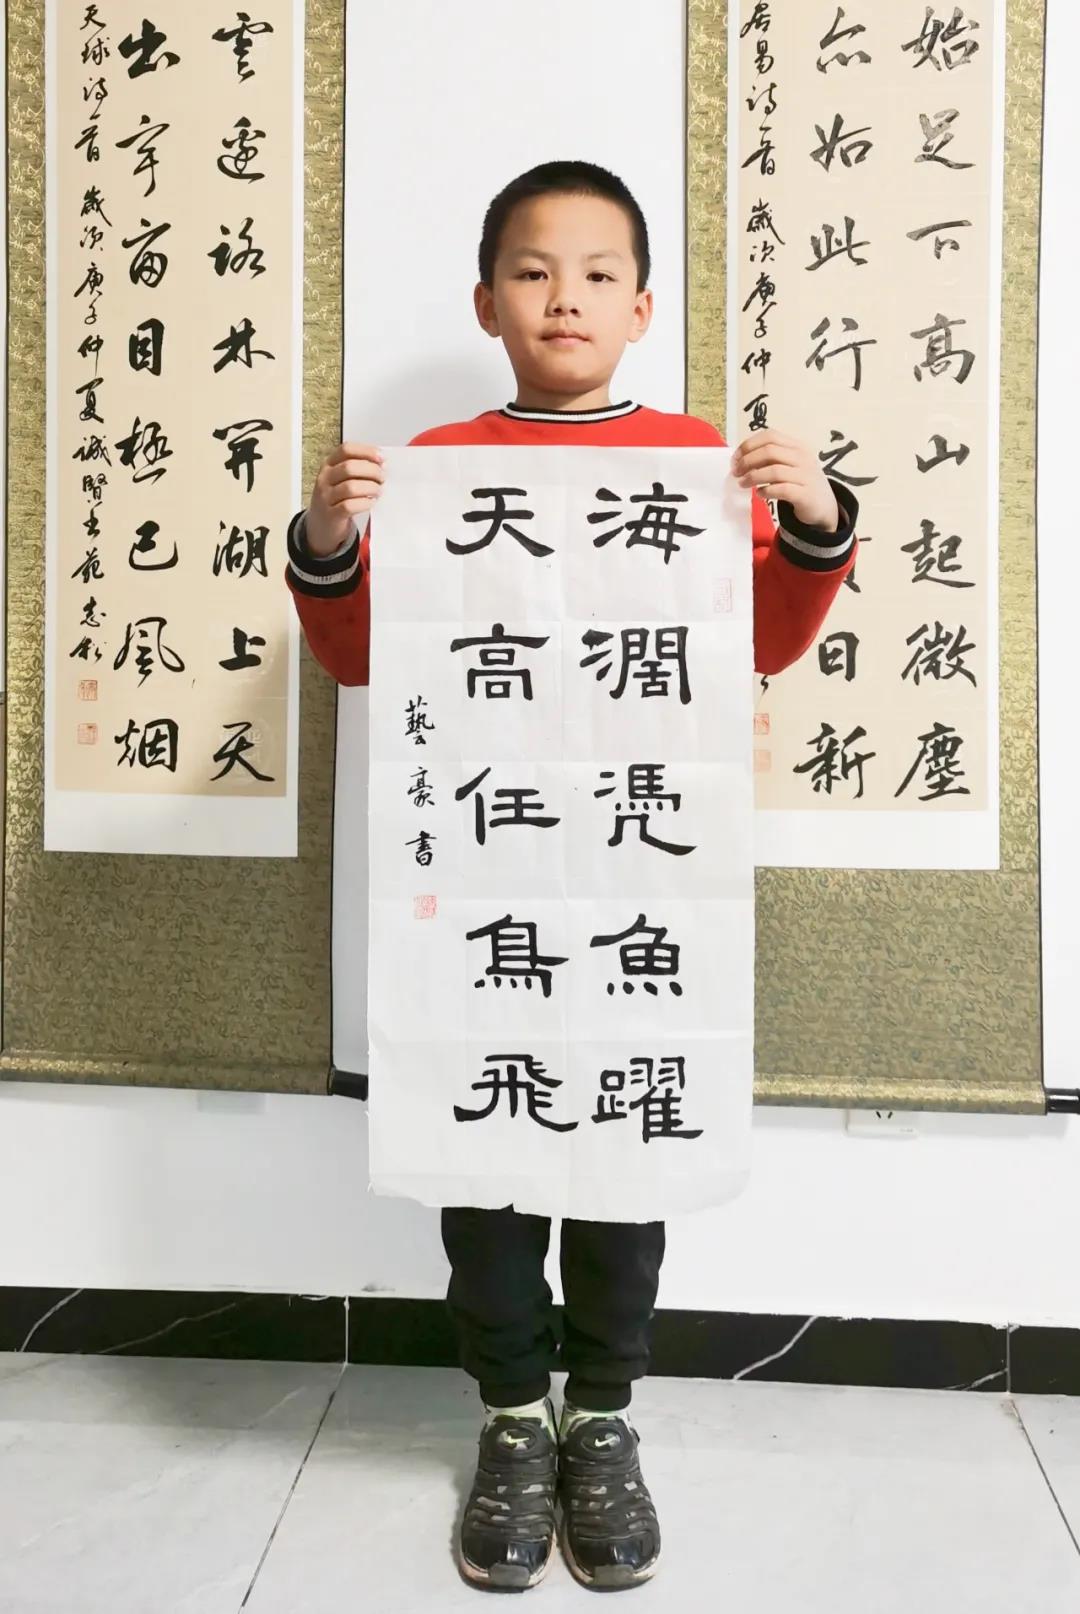 海濶凴魚躍
天高任鳥飛
藝豪書
始足下高山起微塵
亦如此行之日新
居易詩一首 歲次庚子仲夏
雲邊路林開湖上天
出守窗目極已風烟
天球詩一首 歲次庚子仲夏誠賢書苑志彩